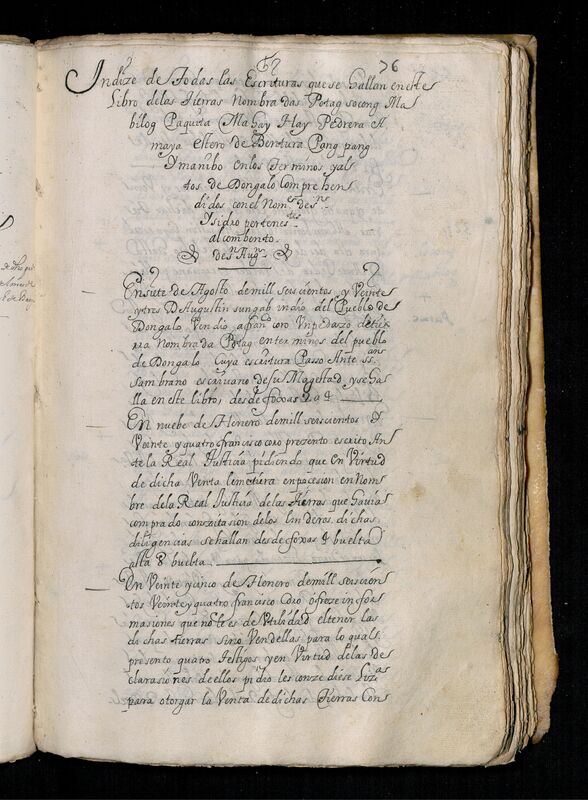 76
Indize de Todas las Escrituras que se hallan en este
Libro de las Tierras Nombradas Potag socong Ma
bilog Paquita Mahay Hay Pedrera A
maya estero de Bentura Pang pang
Y manibo en los Terminos y al
tos de Dongalo Comprehen
didos con el Nom.e de S.n
Ysidro pertenes.tes
al combento
de S.n Aug.n
En siete de Agosto de mill seiscientos y Veinte
y tres D. Augustin sungab indio del Pueblo de
Dongalo Vendio a fran.co coro Un pedazo de tier
rra Nombrada Potag en terminos del pueblo
de Dongalo Cuya escritura Passo Ante
Sambrano escrivano de su Magestad, y se ha
lla en este libro, desde foxas
En nuebe de Henero de mill seiscientos Y
Veinte y quatro francisco coro prezento escrito An
te la Real Justicia pidiendo que En Virtud
de dicha Venta le metiera en pocesion en Nom
bre de la Real Justicia de las tierras que havia
comprado con zitasion de los linderos. dichas
diligencias se hallan desde foxas buelta
alla 8 buelta
En Veinte y cinco de Henero de mill seiscien
tos Veinte y quatro francisco Coro ofreze infor
masiones que no le es de Vtilidad el tener las
dichas tierras sino Vendellas para lo qual
presento quatro Testigos y en Virtud de las de
clarasiones de ellos pidio les conze diese Liz.as
para otorgar la Venta de dichas Tierras Con